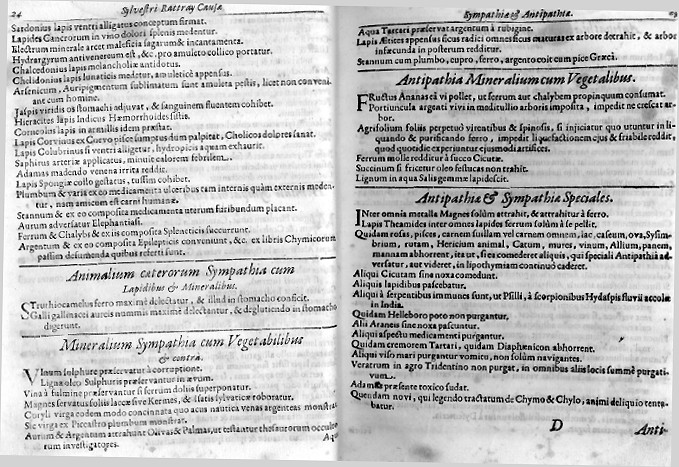 24 Sylvestri Rattray Causæ
Sardonius lapis ventri alligatus conceptum firmat.
Lapides Cancrorum in vino dolori splenis medentur.
Electrum minerale arcet maleficia sagarum & incantamenta.
Hydrargyrum antivenereum est, &c. pro amuleto collico portatur.
Chalcedonius lapis melancholiæ antidotus.
Chelidonius lapis lunaticis medetur, amuletice appensus.
Arsenicum, Auripigmentum sublimatum sunt amuleta pestis, licet non conveni-
ant cum homine.
Jaspis viridis os stomachi adjuvat, & sanguinem fluentem cohibet.
Hieracites lapis Indicus Hæmorrhoides sistit.
Corneolus lapis in armillis idem præstat.
Lapis Corvinus ex Cuevo pisce sumptus dum palpitat, Cholicos dolores sanat.
Lapis Colubrinus si ventri alligetur, hydropicis aquam exhaurit.
Saphirus arteriæ applicatus, minuit calorem febrilem.
Adamas madendo venena irrita reddit.
Lapis Spongiæ collo gestatus, tussim cohibet.
Plumbum & varia ex eo medicamenta ulceribus tam internis quàm externis meden-
tur, nam amicum est carni humanæ.
Stannum & ex eo composita medicamenta uterum furibundum placant.
Aurum adversatur Elephantiasi.
Ferrum & Chalybs & ex iis composita Spleneticis succurrunt.
Argentum & ex eo composita Epilepticis conveniunt, &c. ex libris Chymicorum
passim desumenda quibus referti sunt.
Animalium cæterorum Sympathia cum
Lapidibus & Mineralibus.
Struthiocamelus ferro maximè delectatur, & illud in stomacho conficit.
Galli gallinacei aureis nummis maximè delectantur, & deglutiendo in stomacho
digerunt.
Mineralium Sympathia cum Vegetabilibus
& contrà.
Vinum sulphure præservatur à corruptione.
Ligna oleo Sulphuris præservantur in ævum.
Vina à fulmine præservantur si ferrum doliis superponatur.
Magnes servatus foliis laccæ sive Kermes, & satis sylvatica roboratur.
Coryli virga eodem modo concinnata quo acus nautica venas argenteas monstrat.
Sic virga ex Piceastro plumbum monstrat.
Aurum & Argentum attrahunt Olivas & Palmas, ut testantur thesaurorum occulto-
rum investigatores.
Aqua
Sympathiæ & Antipathiæ. 25
Aqua Tartari præservat argentum à rubigine.
Lapis Aetites appensus ficus radici omnes ficus maturas ex arbore detrahit, & arbor
infæcunda in posterum redditur.
Stannum cum plumbo, cupro, ferro, argento coit cum pice Græca.
Antipathia Mineralium cum Vegetalibus.
Fructus Ananas eâ vi pollet, ut ferrum aut chalybem propinquum consumat.
Portiuncula argenti vivi in meditullio arboris imposita, impedit ne crescat ar-
bor.
Agrifolium foliis perpetuò virentibus & spinosis, si injiciatur quo utuntur in li-
quando & purificando ferro, impedit liquefactionem ejus & friabile reddit,
quod quotidie experiuntur ejusmodi artifices.
Ferrum molle redditur à succo Cicutæ.
Succinum si fricetur oleo festucas non trahit.
Lignum in aqua Salisgemmæ lapidescit.
Antipathiæ & Sympathiæ Speciales.
Inter omnia metalla Magnes solùm attrahit, & attrahitur à ferro.
Lapis Theamides inter omnes lapides ferrum solùm à se pellit.
Quidam rosas, pisces, carnem suillam vel carnem omnem, lac, caseum, ova, Sysim-
brium, rutam, Hericium animal, Catum, mures, vinum, Allium, panem,
mannam abhorrent, ita ut, si ea comederet aliquis, qui speciali Antipathiâ ad-
versatur, aut videret, in lipothymiam continuò caderet.
Aliqui Cicutam sine noxa comedunt.
Aliquis lapidibus pascebatur.
Aliqui à serpentibus immunes sunt, ut Psilli, à scorpionibus Hydaspis fluvii accolæ
in India.
Quidam Helleboro poto non purgantur.
Alii Araneis sine noxa pascuntur.
Aliqui aspectu medicamenti purgantur.
Quidam cremorem Tartari, quidam Diaphænicon abhorrent.
Aliqui viso mari purgantur vomitu, non solùm navigantes.
Veratrum in agro Tridentino non purgat, in omnibus aliis locis summè purgati-
vum.
Adamas præsente toxico sudat.
Quendam novi, qui legendo tractatum de Chymo & Chylo, animi deliquio tenta-
batur.
D Anti-